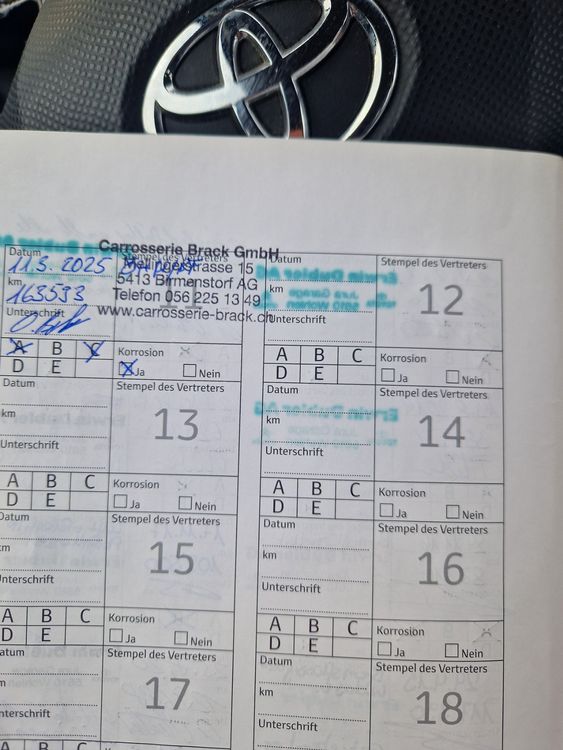 Carrosserie Brack GmbH
Datum
11.3.2025
Stempel des Vertreters
5413 Birmenstorf AG
km
163533
Telefon 056 225 13 49
Unterschrift
www.carrosserie-brack.ch
A B C
D E
Korrosion
Ja Nein
Datum
km
Unterschrift
Stempel des Vertreters
12
A B C
D E
Korrosion
Ja Nein
Datum
km
Unterschrift
Stempel des Vertreters
13
A B C
D E
Korrosion
Ja Nein
Datum
km
Unterschrift
Stempel des Vertreters
14
A B C
D E
Korrosion
Ja Nein
Datum
km
Unterschrift
Stempel des Vertreters
15
A B C
D E
Korrosion
Ja Nein
Datum
km
Unterschrift
Stempel des Vertreters
16
A B C
D E
Korrosion
Ja Nein
Stempel des Vertreters
17
A B C
Datum
km
Unterschrift
Stempel des Vertreters
18